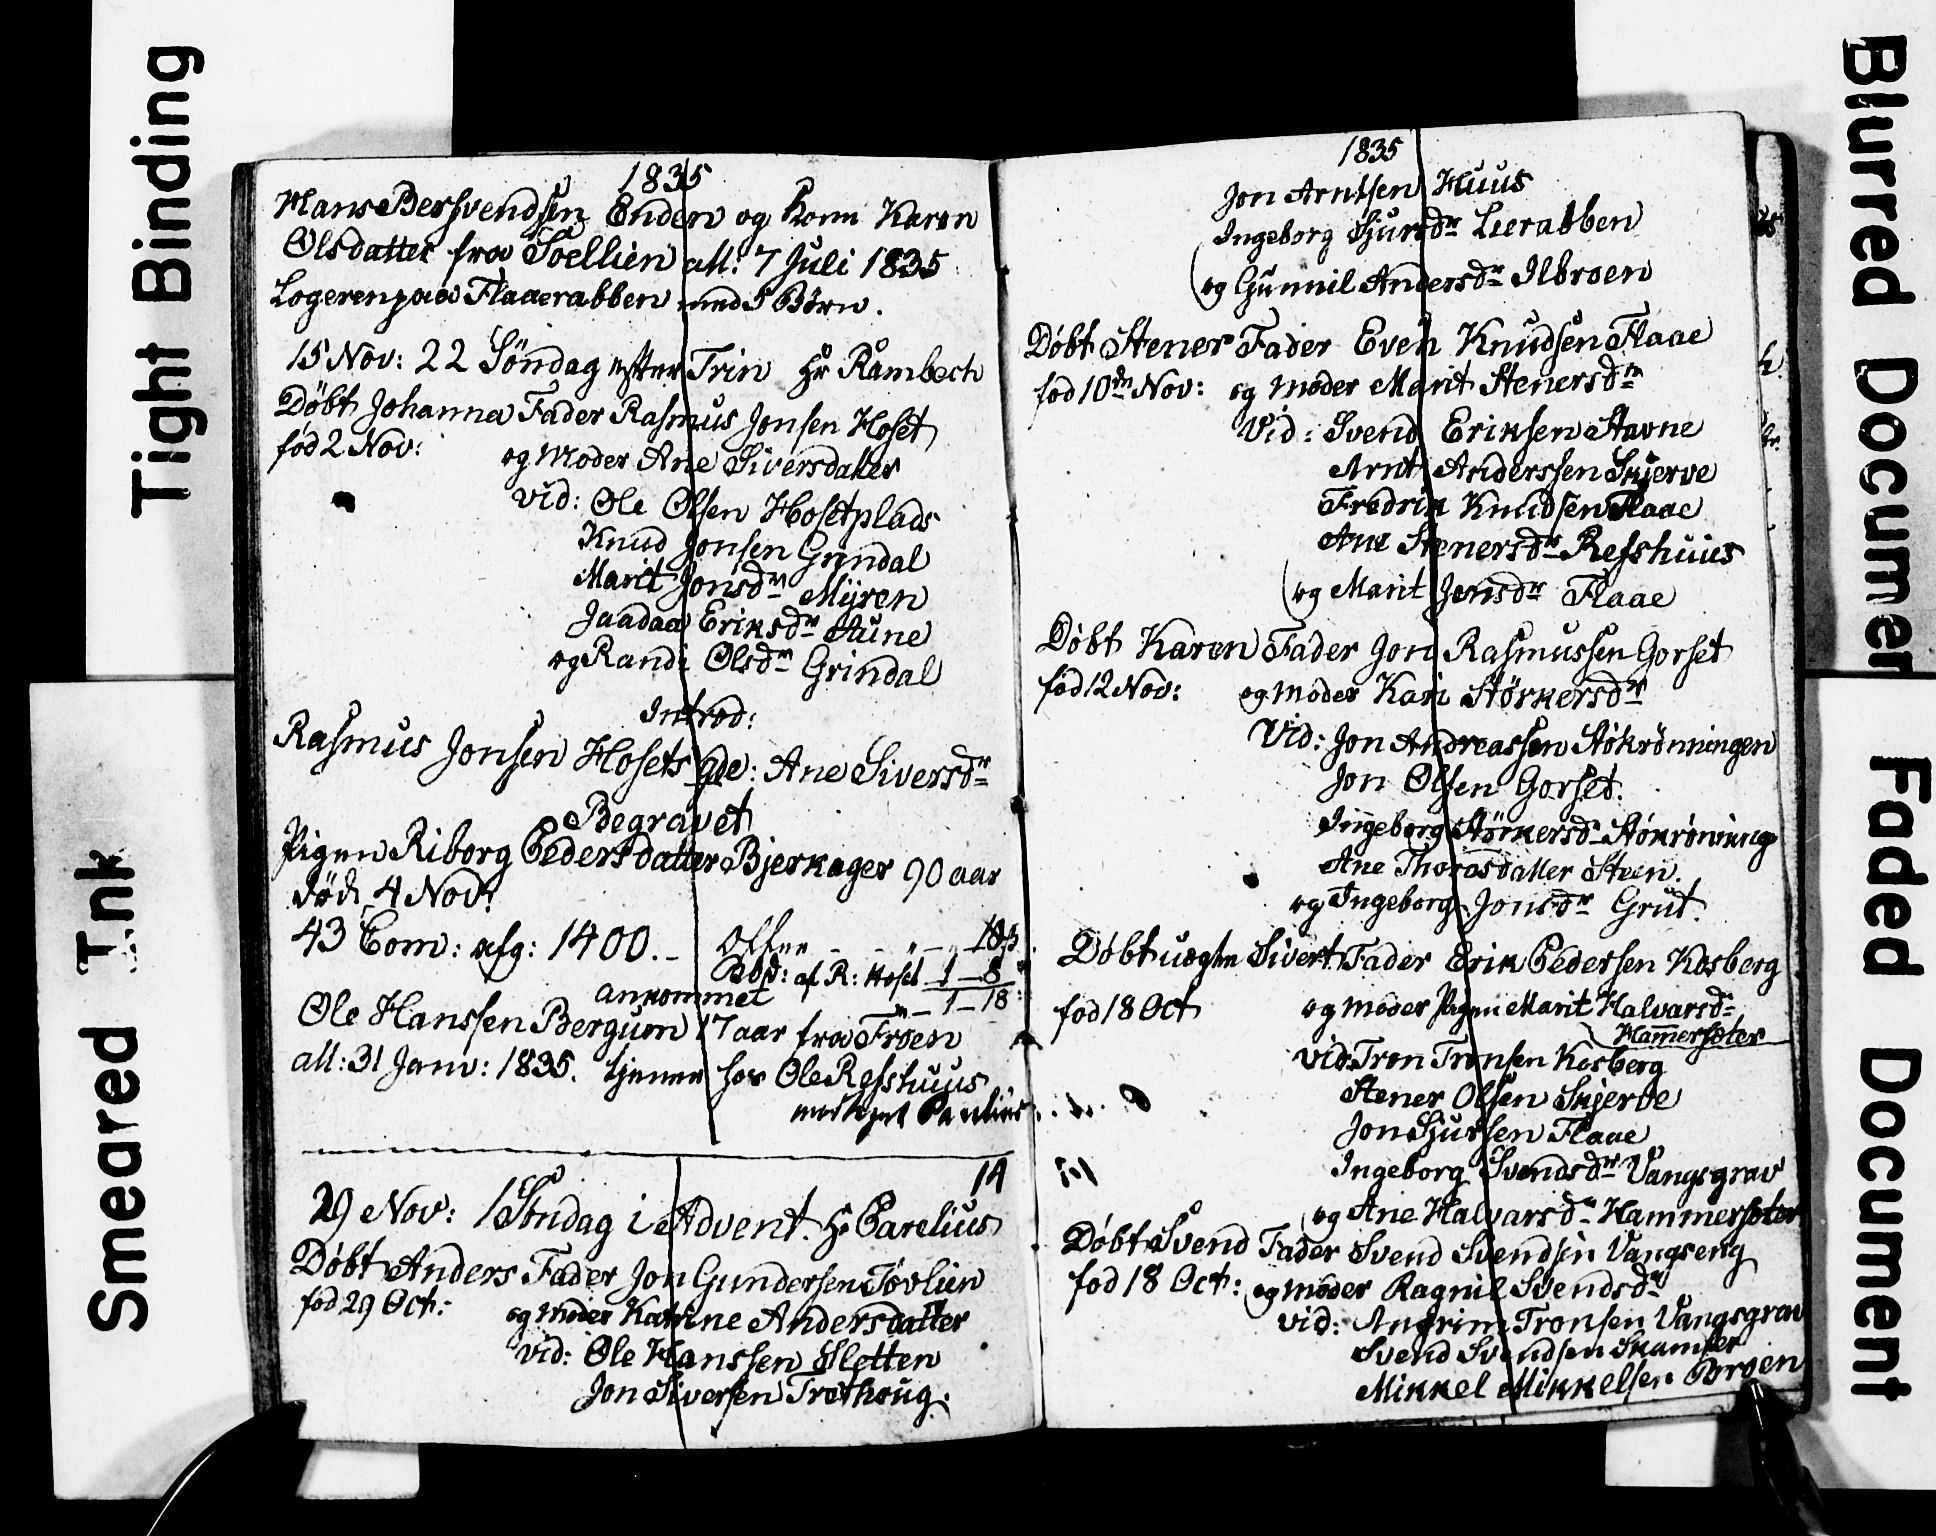 Tight Binding
Smeared Ink
1835
Hans Bersvendsen Enden og Kone Karen
Olsdatter fra Soellien att: 7 Juli 1835
Logeren paa Flaaerabben med 5 Børn.
15 Nov: 22 Søndag efter Trin Hr Rambech
Døbt Johanna Fader Rasmus Jonsen Hoset
fød 2 Nov: og Moder Ane Siversdatter
vid: Ole Olsen Hosetplads
Knud Jonsen Grindal
Marit Jonsdr Myren
Jaadaa Eriksdr Aune
og Randi Olsdr Grindal
Introd:
Rasmus Jonsen Hosets Qde: Ane Siversdr
Begravet
Pigen Riborg Pedersdatter Bjerkager 90 aar
død 4 Nov:
43 Com: afg: 1400. Offer 105
af R: Hoset 1 - 8
1 - 18
ankommet
Ole Hanssen Bergum 17 aar fra Froen
att: 31 Janv: 1835. tjener hos Ole Refshuus
14
29 Nov: 1 Søndag i Advent. Hr Parelius
Døbt Anders Fader Jon Gundersen Tøvlien
fød 29 Oct: og Moder Katrine Andersdatter
vid: Ole Hanssen Sletten
Jon Siversen Trøthoug.
1835
Jon Arntsen Huus
Ingeborg Sjursdr Leerabben
og Gunnil Andersdr Ilbroen
Døbt Stener Fader Even Knudsen Flaae
fød 10de Nov: og Moder Marit Stenersdr
Vid: Svend Eriksen Stavne
Arnt Anderssen Skjerve
Fredrik Knudsen Flaae
Ane Stenersdr Refshuus
og Marit Jonsdr Flaae
Døbt Karen Fader Jon Rasmussen Gorset
fød 12 Nov: og Moder Kari Størkersdr
Vid: Jon Andreassen Støkrønningen
Jon Olsen Gorset.
Ingeborg Størkersdr Støkrønning
Ane Thorasdatter Steen.
og Ingeborg Jonsdr Grut.
Døbt uægte Sivert Fader Erik Pedersen Kosberg
fød 18 Oct og Moder Pigen Marit Halvarsdr
Hamersæter
vid: Tron Tronsen Kosberg
Stener Olsen Skjerve
Jon Sjursen Flaae
Ingeborg Svendsdr Vangsgrav
og Ane Halvarsdr Hammersæter
Døbt Svend Fader Svend Svendsen Vangseng
fød 18 Oct: og Moder Ragnil Svendsdr
vid: Angrim Tronsen Vangsgrav
Svend Svendsen Skamfer
Mikkel Mikkelsen Broen
Blurred Document
Faded Document